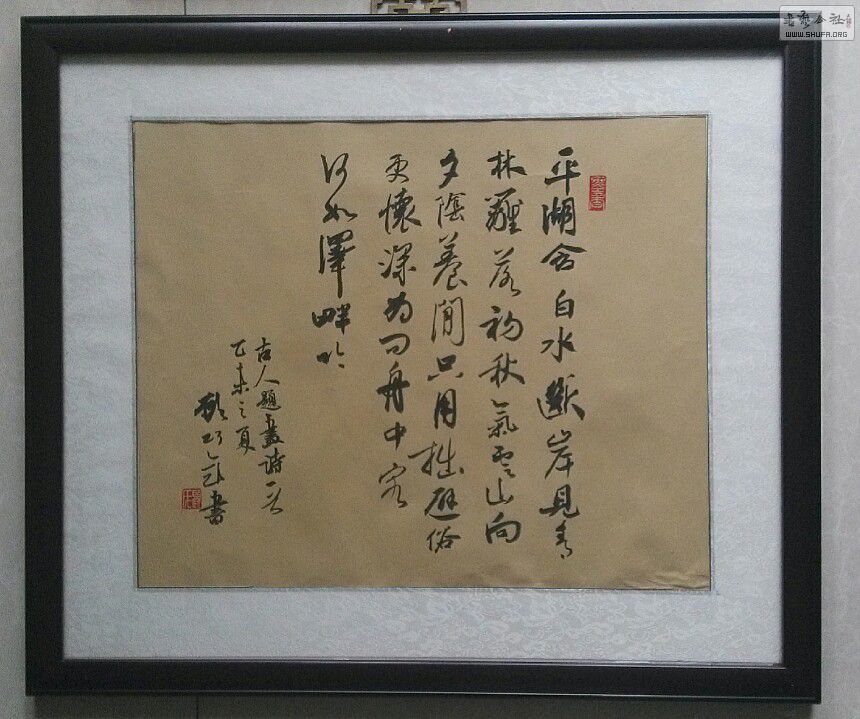 平湖含白水斷岸見青
林籬落初秋氣雲山向
夕陰養閒只用拙避俗
更懷深為問舟中客
何如澤畔吟
古人題畫詩一首
乙未之夏
書
書藝公社
WWW.SHUFA.ORG